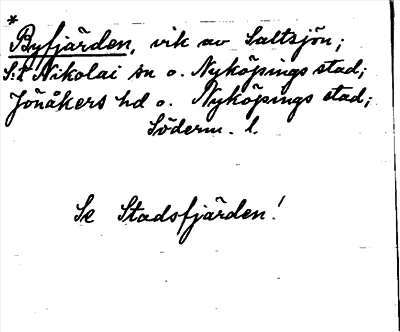 *
Byfjärden, vik av Saltsjön;
S:t Nikolai sn o. Nyköpings stad;
Jönåkers hd o. Nyköpings stad;
Söderm. l.
Se Stadsfjärden!